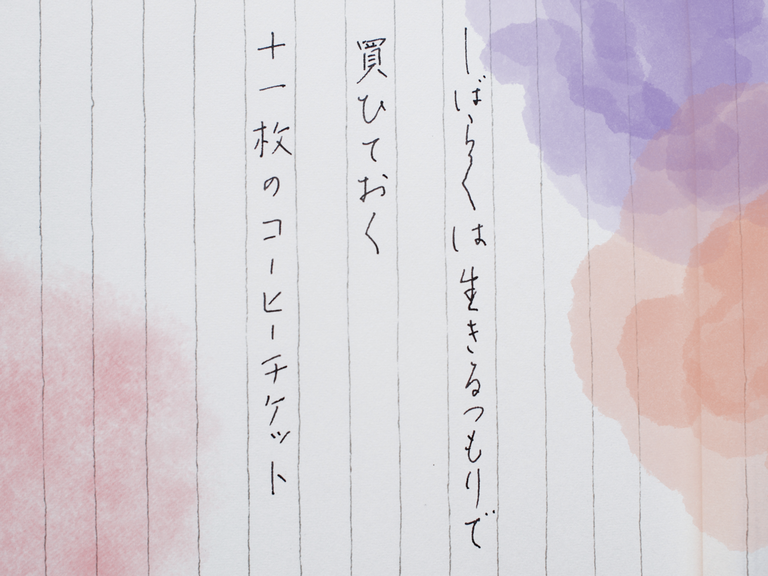 しばらくは生きるつもりで
買ひておく
十一枚のコーヒーチケット